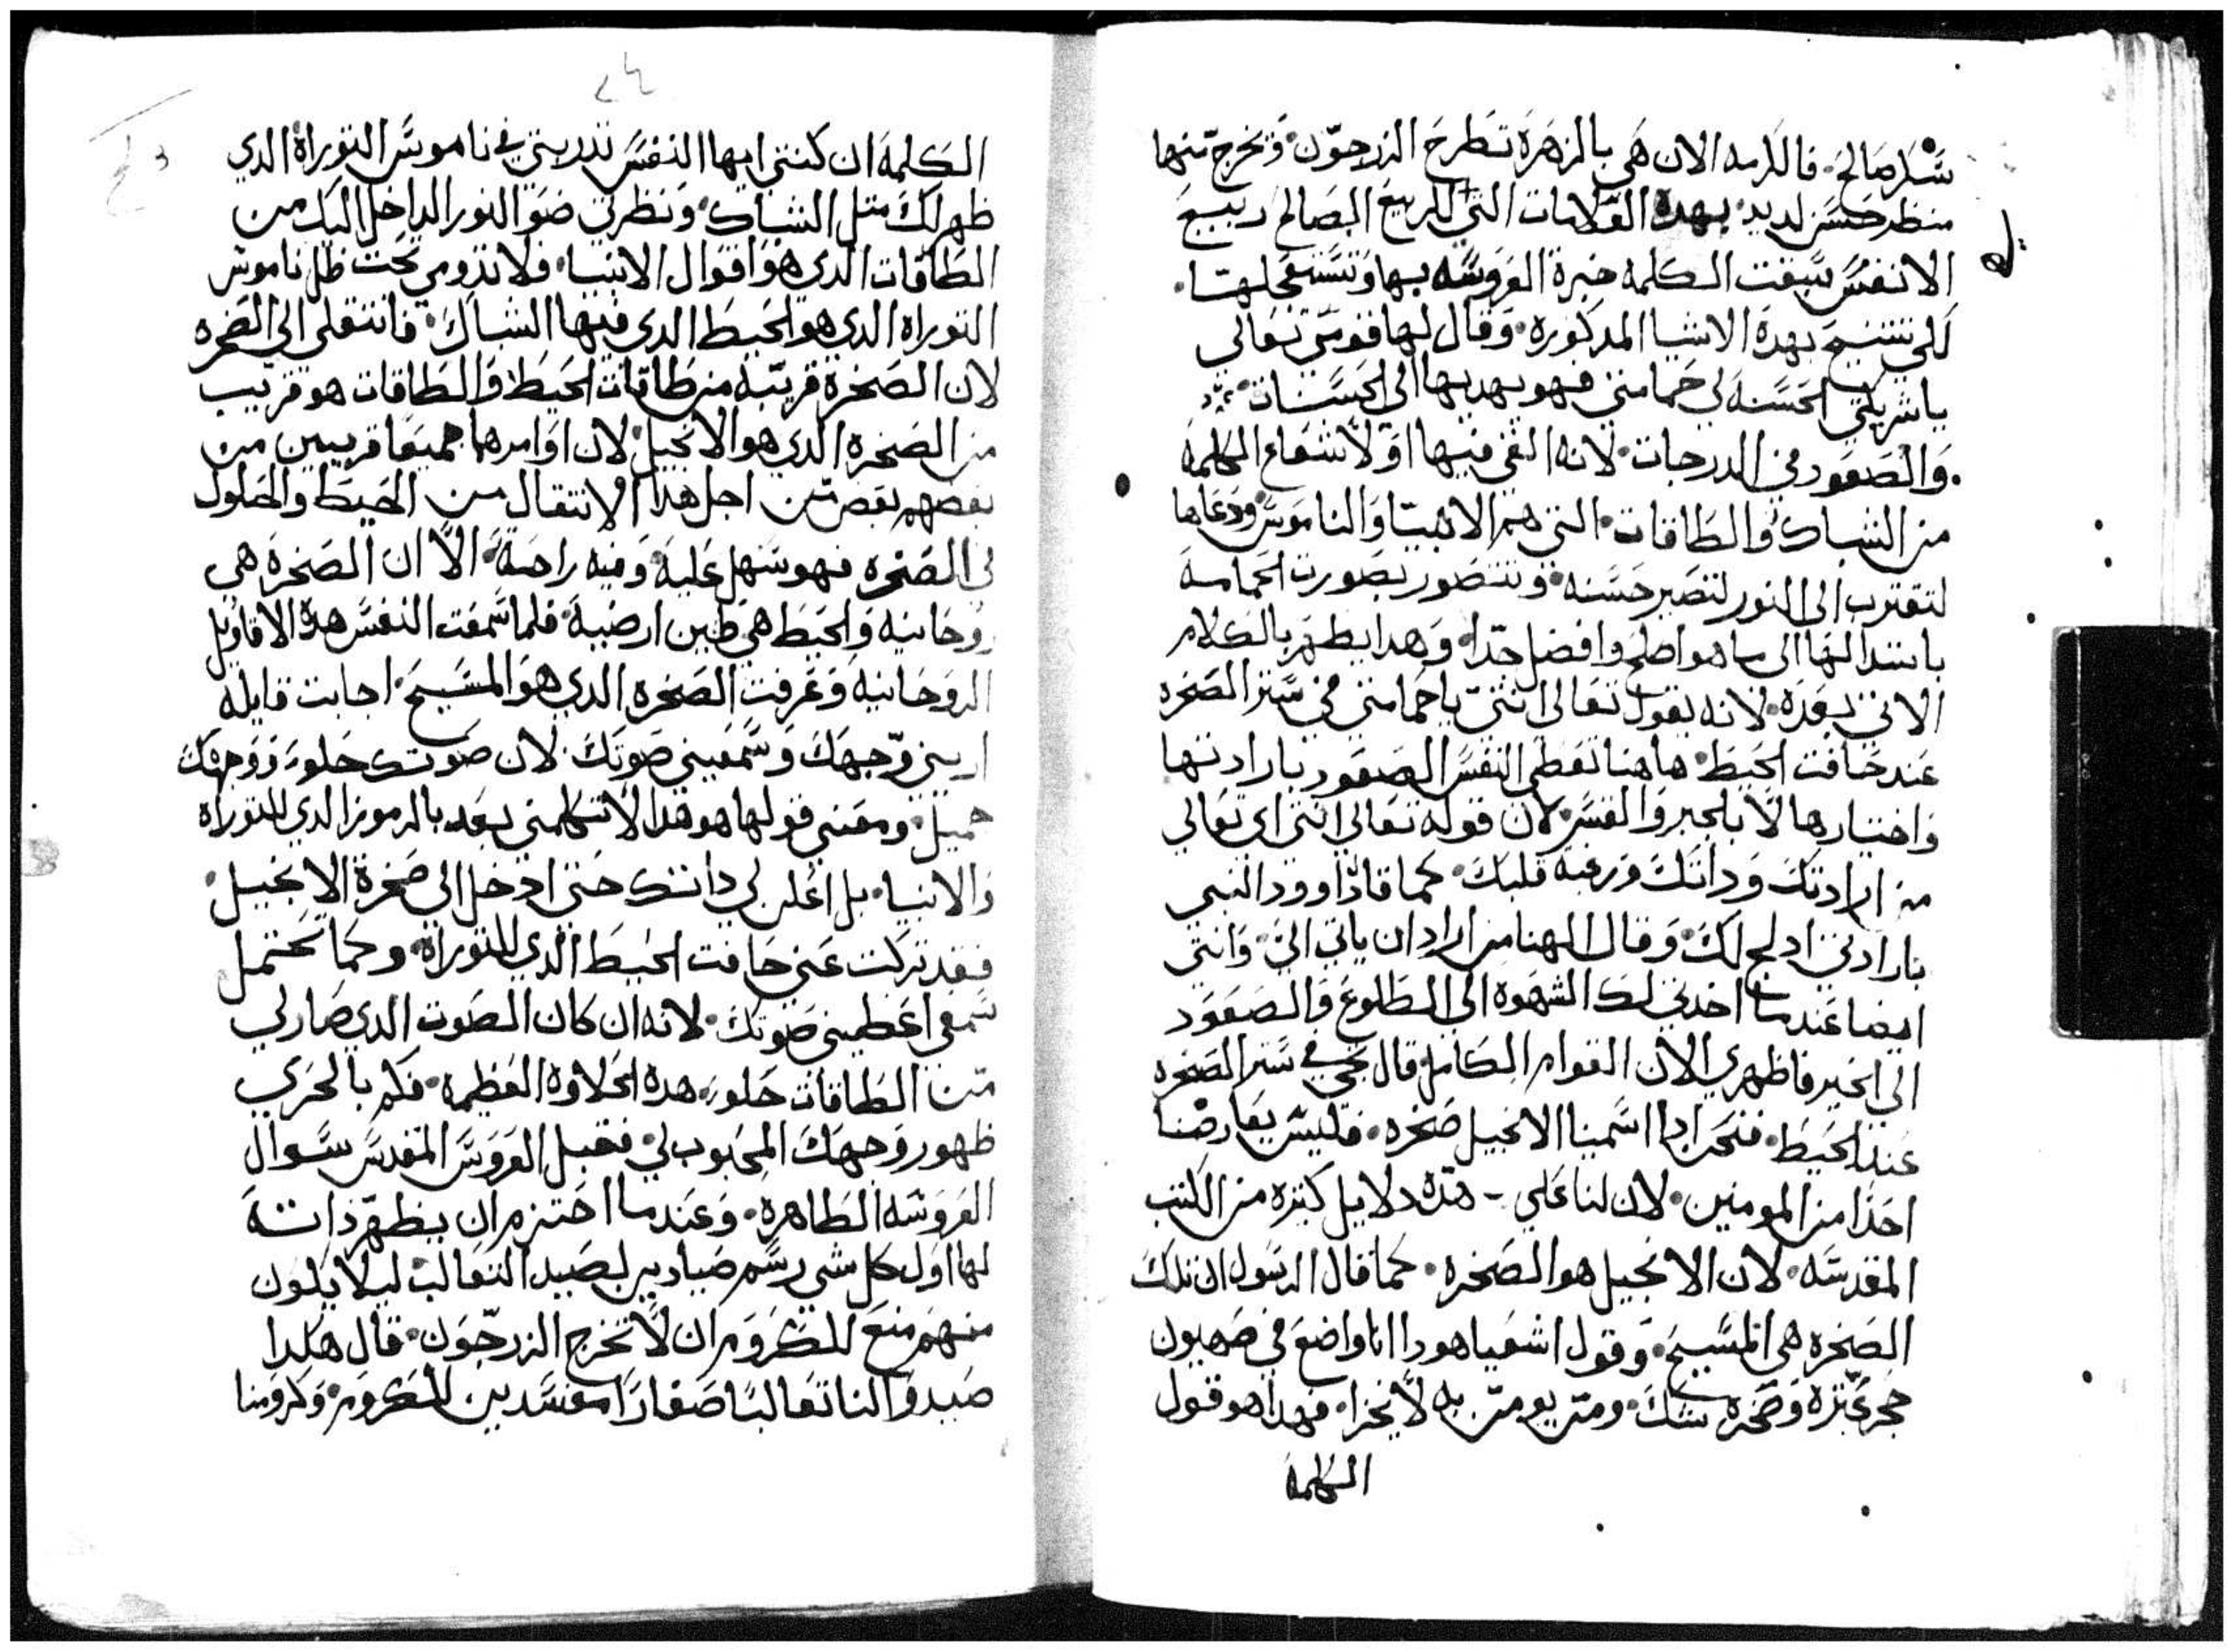 سلر صالح. فالكرمه الان هي بالزهرة تطرح الزرجون. وتخرج منها
منظر حسن لديد. بهدة العلامات التي للربيع الصالح ربيع
الانفس سبقت الكلمه خبرة العروسه بها وتستعجلها.
لكي تتنيح بهدة الاشيا المدكورة. وقال لها قومي تعالي
ياشريكتي الحسنة لي حمامتي فهو يهديها الي الحسنات.
والصعود في الدرجات. لانه القى فيها اولا شعاع الكلمة
من الشباك والطاقات. التي هم الانبيا والناموس ودعاها
لتقترب الى النور لتصير حسنه. وتتصور بصورت الحمامة
بابتدالها الى ما هو اصلح وافضل جدا. وهدا يظهر بالكلام
الاتي بعدة. لانه يقول تعالى انتي ياحمامتي في ستر الصخره
عند حافت الحيط. هاهنا تعطى النفس الصعود بارادتها
واختيارها لا بالجبر والقسر. لان قوله تعالي انتي اي تعالي
من ارادتك وداتك ورغبة قلبك. كما قال داوود النبي
بارادتي ادبح لك. وقال الهنا من اراد ان ياتي الي. وانتي
ايضا عندما اخدتي لك الشهوة الى الطلوع والصعود
الي الخير فاظهري الان القوام الكامل قال تجي في ستر الصخره
عند الحيط. فنحن ادا اسمينا الانجيل صخره. فليس يعارضنا
احدا من المومنين. لان لنا علي - هده دلايل كتيره من الكتب
المقدسه. لان الانجيل هو الصخره. كما قال الرسول ان تلك
الصخره هي المسيح. وقول اشعيا هودا انا واضع في صهيون
حجر عتره وصخرة شك. ومن يومن به لا يخزا. فهدا هو قول
الكلمة
الكلمه ان كنتي ايها النفس تدربتي في ناموس التوراة الدي
ظهر لك متل الشباك. ونظرتي ضو النور الداخل اليك من
الطاقات الدي هو اقوال الانبيا. فلا تدومي تحت ظل ناموس
التوراه الدي هو الحيط الدي فيها الشباك. فانتقلي الى الصخره
لان الصخرة قريبه من طاقات الحيط والطاقات هو قريب
من الصخره الدي هو الانجيل. لان اوامرهما جميعا قريبين من
بعضهم بعض من اجل هدا الانتقال من الحيط والحلول
في الصخره فهو سهل عليه وفيه راحة. الا ان الصخرة هي
روحانيه والحيط هي طين ارضية. فلما سمعت النفس هدة الاقاويل
الروحانيه وعرفت الصخره الدي هو المسيح. اجابت قايله
اريني وجهك وسمعيني صوتك. لان صوتك حلو. ووجهك
جميل. ومعنى قولها هو هدا لا تكلمني بعد بالرموز الدي للتوراة
والانبيا. بل اعلن لي داتك حتى ادخل الي صخرة الانجيل.
فقد تركت عني حافت الحيط الدي للتوراة. وكما تحتمل
سمعي اعطيني صوتك. لانه ان كان الصوت الدي صار لي
من الطاقات حلو. هدة الحلاوة العظيمه. فكم بالحري
ظهور وجهك المحبوب لي. فقبل العروس المقدس سوال
العروسة الطاهرة. وعندما احتزم ان يظهر داته
لها اول كل شي رسم صيادين لصيد التعالب. ليلا يكون
منهم منع للكروم ان لا تخرج الزرجون. قال هكدا
صيدوا لنا تعالبا صغارا مفسدين للكروم. وكرومنا